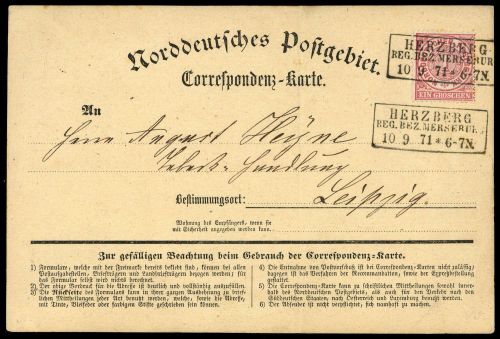 Norddeutsches Postgebiet.
Correspondenz-Karte.
HERZBERG
REG. BEZ. MERSEBUR
10 9 71 * 6-7N.
EIN GROSCHEN
HERZBERG
REG. BEZ. MERSEBURG
10 9 71 * 6-7N.
An
Herrn August Heyne
Handlung
Bestimmungsort: Leipzig.
Wohnung des Empfängers, wenn sie
mit Sicherheit angegeben werden kann.
Zur gefälligen Beachtung beim Gebrauch der Correspondenz-Karte.
1) Formulare, welche mit der Freimarke bereits beklebt sind, können bei allen
Postaufgabestellen, Briefträgern und Landbriefträgern bezogen werden; für
das Formular selbst wird nichts berechnet.
2) Der obige Vordruck für die Adresse ist deutlich und vollständig auszufüllen.
3) Die Rückseite des Formulars kann in ihrer ganzen Ausdehnung zu brieflichen
Mittheilungen jeder Art benutzt werden, welche, sowie die Adresse,
mit Tinte, Bleifeder oder farbigen Stifte geschrieben sein können.
4) Die Entnahme von Postvorschuß ist bei Correspondenz-Karten nicht zulässig;
dagegen ist das Verfahren der Recommandation, sowie der Expreßbestellung
gestattet.
5) Die Correspondenz-Karte kann zu schriftlichen Mittheilungen sowohl innerhalb
des Norddeutschen Postgebiets, als auch für den Verkehr nach den
Süddeutschen Staaten, nach Oesterreich und Luxemburg benutzt werden.
6) Der Absender ist nicht verpflichtet, sich namhaft zu machen.